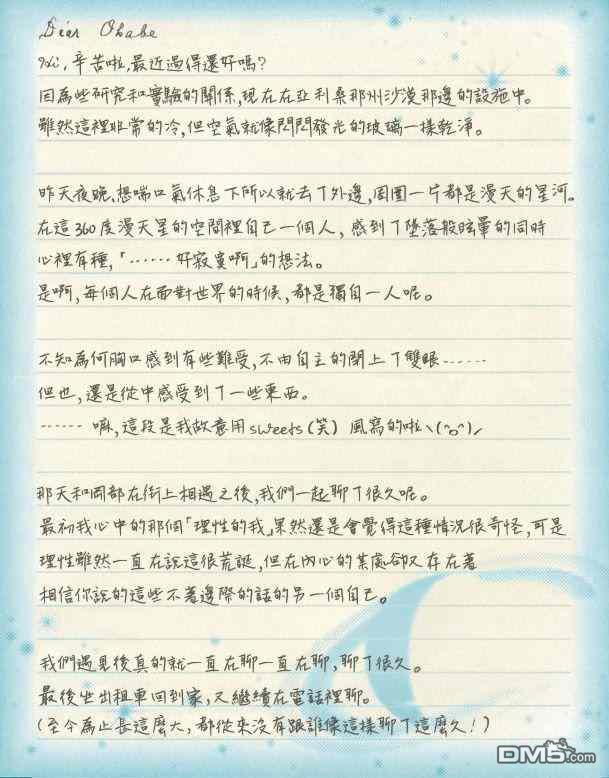 Dear Okabe
Hi，辛苦啦，最近過得還好嗎？
因為些研究和實驗的關係，現在在亞利桑那州沙漠那邊的設施中。
雖然這裡非常的冷，但空氣就像閃閃發光的玻璃一樣乾淨。
昨天夜晚，想喘口氣休息下所以就去了外邊，周圍一片都是漫天的星河。
在這360度漫天星的空間裡自己一個人，感到了墜落般眩暈的同時
心裡有種，「……好寂寞啊」的想法。
是啊，每個人在面對世界的時候，都是獨自一人呢。
不知為何胸口感到有些難受，不由自主的閉上了雙眼……
但也，還是從中感受到了一些東西。
……嘛，這段是我故意用sweets(笑) 風寫的啦ヽ(^o^)ノ
那天和岡部在街上相遇之後，我們一起聊了很久呢。
最初我心中的那個「理性的我」果然還是會覺得這種情況很奇怪，可是
理性雖然一直在說這很荒誕，但在內心的某處卻又存在著
相信你說的這些不著邊際的話的另一個自己。
我們遇見後真的就一直在聊一直在聊，聊了很久。
最後坐出租車回到家，又繼續在電話裡聊。
(至今為止長這麼大，都從來沒有跟誰像這樣聊了這麼久！)
DM5.com